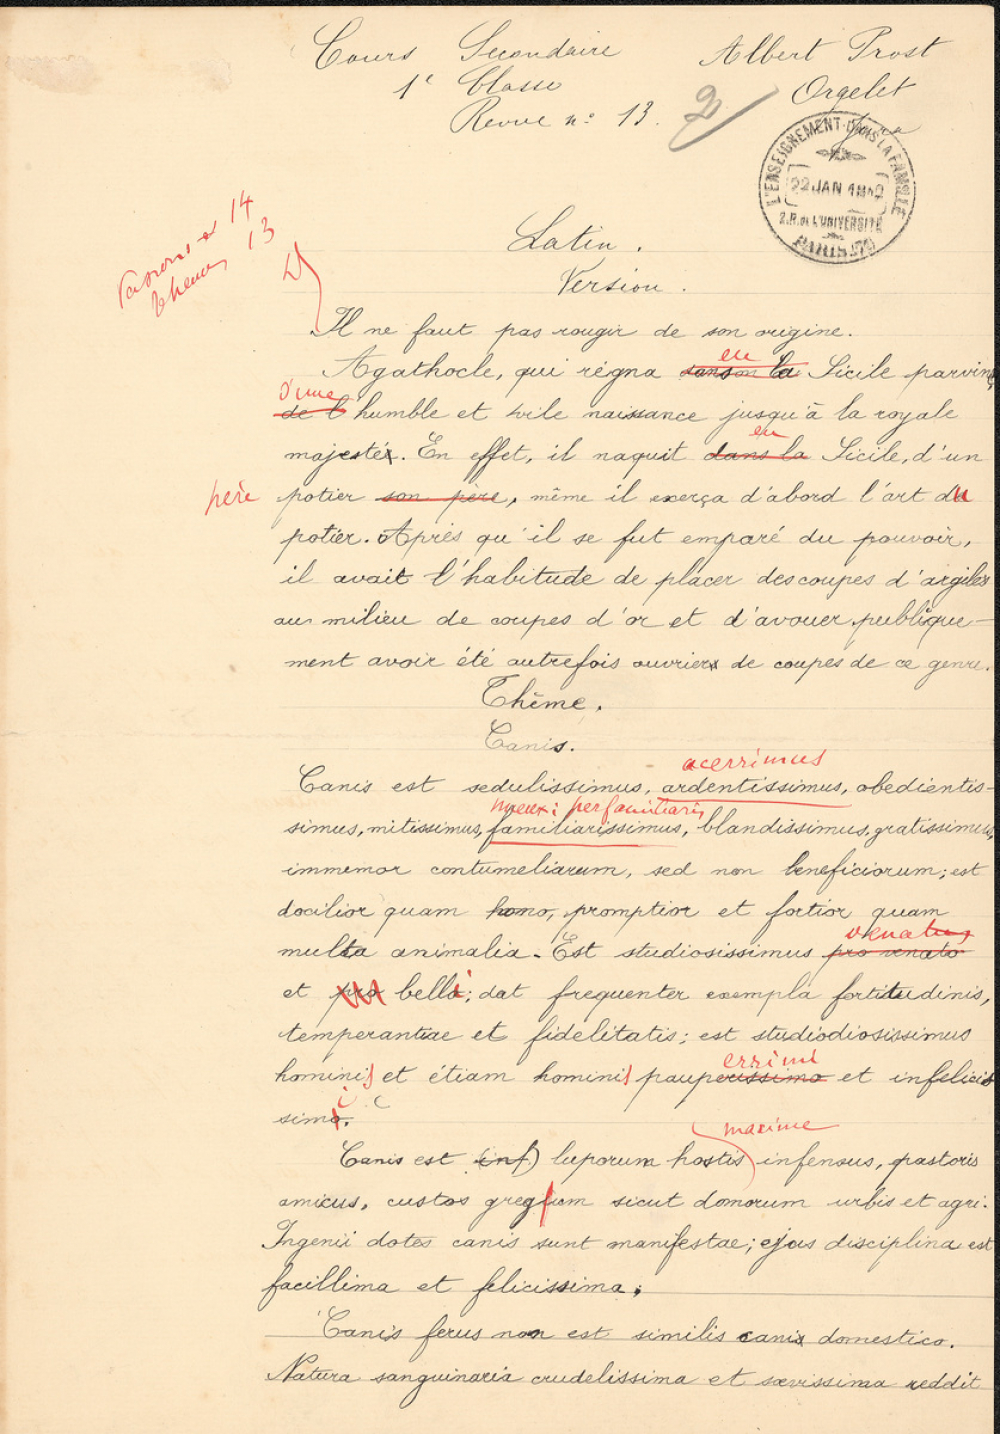 Cours Secondaire
Albert Prost
1e Classe
Orgelet
Revue n: 13.
Jura
L'ENSEIGNEMENT DANS LA FAMILLE
22 JAN
2.R. DE L'UNIVERSITÉ
PARIS
14
Thème 13
Latin.
Version.
Il ne faut pas rougir de son origine.
en
Agathocle, qui régna la Sicile parvint
d'une
de l'humble et vile naissance jusqu'à la royale
en
majesté. En effet, il naquit dans la Sicile, d'un
père potier son père, même il exerça d'abord l'art du
potier. Après qu'il se fut emparé du pouvoir,
il avait l'habitude de placer des coupes d'argiles
au milieu de coupes d'or et d'avouer publique-
ment avoir été autrefois ouvrier de coupes de ce genre.
Thème.
Canis.
acerrimus
Canis est sedulissimus, ardentissimus, obedientis-
mieux: perfamiliaris
simus, mitissimus, familiarissimus, blandissimus, gratissimus,
immemor contumeliarum, sed non beneficiorum; est
docilior quam homo, promptior et fortior quam
venatus
multa animalia. Est studiosissimus pro venato
et pro belli; dat frequenter exempla fortitudinis,
temperantiae et fidelitatis; est studiodiosissimus
errimi
hominis et étiam hominis pauperissimo et infelicis
simo.
maxime
Canis est (inf) luporum hostis infensus, pastoris
amicus, custos gregum sicut domorum urbis et agri.
Ingenii dotes canis sunt manifestae; ejus disciplina est
facillima et felicissima.
Canis ferus non est similis canis domestico.
Natura sanguinaria crudelissima et sævissima reddit